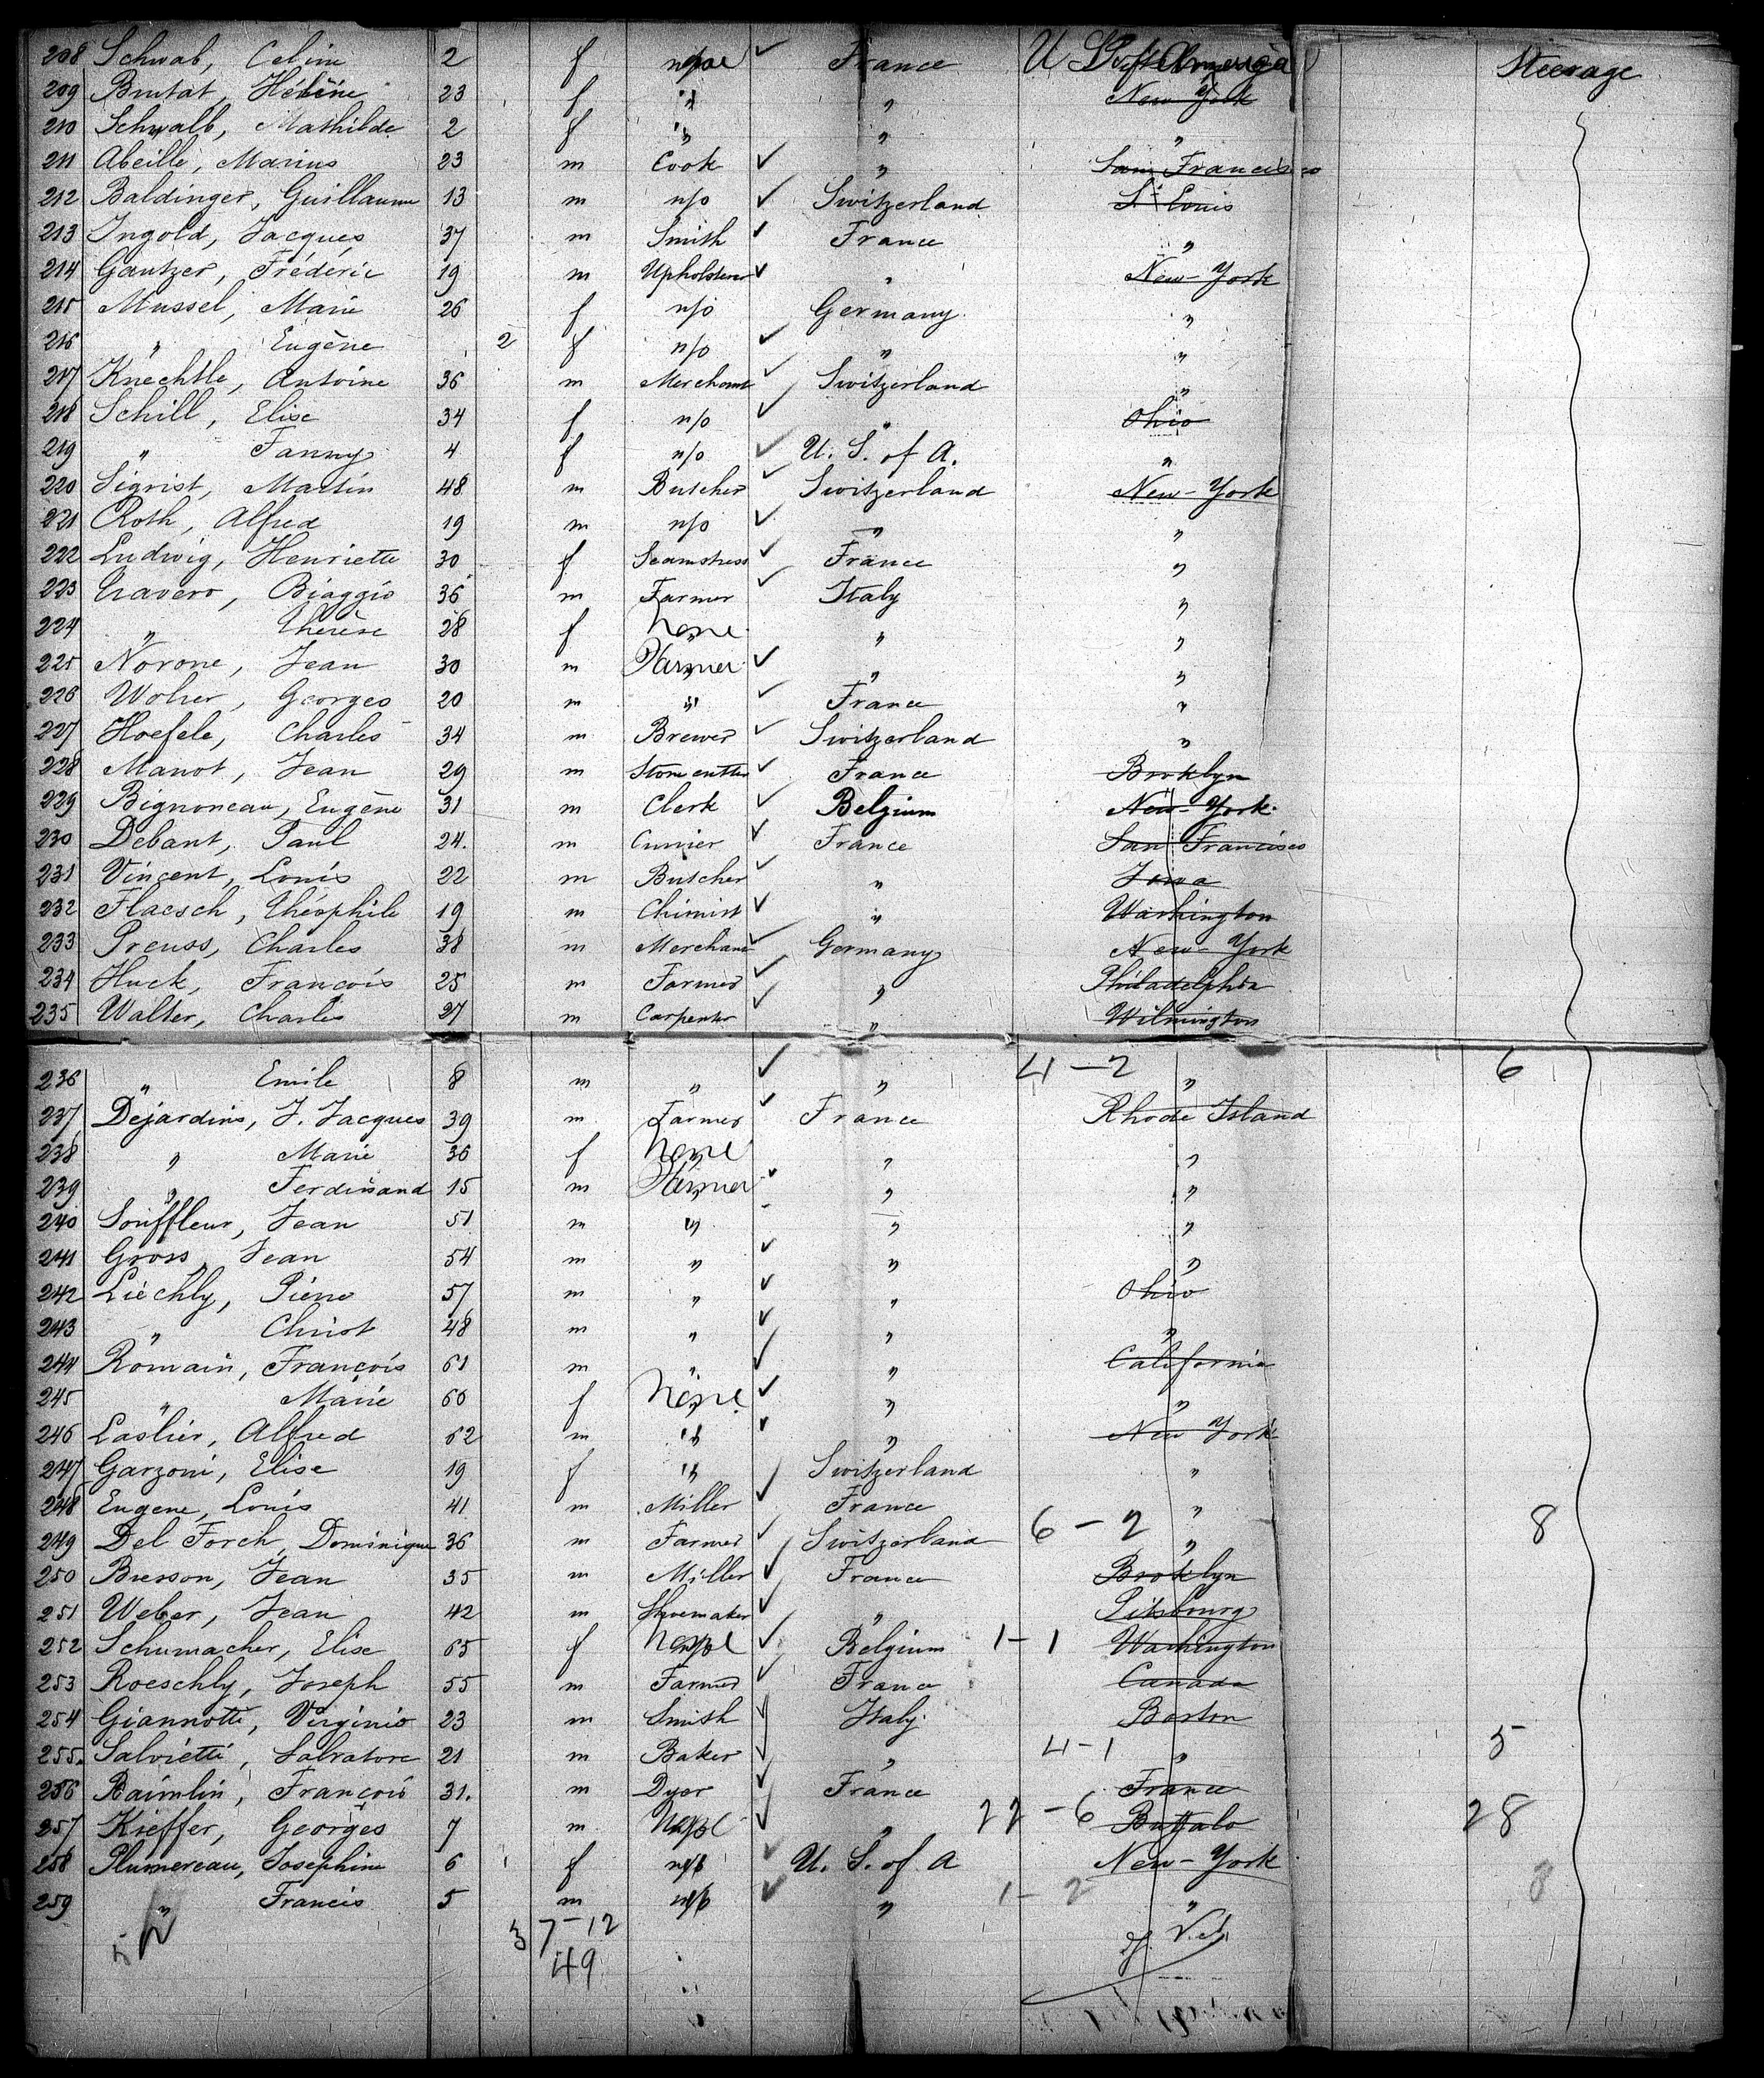 208 Schwab, Celine 2 f None France U S of America Steerage
209 Brutat, Hélène 23 f " " New York
210 Schwalb, Mathilde 2 f " " "
211 Abeille, Marius 23 m Cook " San Francisco
212 Baldinger, Guillaume 13 m n/o Switzerland St Louis
213 Ingold, Jacques 37 m Smith France "
214 Gantzer, Fréderic 19 m Upholsterer " New-York
215 Mussel, Marie 26 f n/o Germany "
216 " Eugène 2 f n/o " "
217 Knechtle, Antoine 36 m Merchant Switzerland "
218 Schill, Elise 34 f n/o " Ohio
219 " Fanny 4 f n/o U. S. of A. "
220 Sigrist, Martin 48 m Butcher Switzerland New-York
221 Roth, Alfred 19 m n/o " "
222 Ludwig, Henriette 30 f Seamstress France "
223 Cravero, Biaggio 36 m Farmer Italy "
224 " Thérèse 28 f None " "
225 Norone, Jean 30 m Farmer " "
226 Wolrer, Georges 20 m " France "
227 Hoefele, Charles 34 m Brewer Switzerland "
228 Manot, Jean 29 m Stone cutter France Broklyn
229 Bignoneau, Eugène 31 m Clerk Belgium New-York
230 Debant, Paul 24. m France San Francisco
231 Vincent, Louis 22 m Butcher " Iowa
232 Flaesch, Théophile 19 m Chimist " Washington
233 Preuss, Charles 38 m Merchant Germany New-York
234 Huck, François 25 m Farmer " Philadelphia
235 Walter, Charles 27 m Carpenter " Wilmington
236 " Emile 8 m " " 4-2 " 6
237 Dejardins, J. Jacques 39 m Farmer France Rhode Island
238 " Marie 36 f None " "
239 " Ferdinand 15 m Farmer " "
240 Souffleur, Jean 51 m " " "
241 Gross, Jean 54 m " " "
242 Liechly, Pierre 57 m " " Ohio
243 " Christ 48 m " " "
244 Romain, François 61 m " " California
245 " Marie 60 f None " "
246 Laslier, Alfred 62 m " " New York
247 Garzoni, Elise 19 f " Switzerland "
248 Eugene, Louis 41 m Miller France "
249 Del Forch, Dominique 36 m Farmer Switzerland 6-2 " 8
250 Bresson, Jean 35 m Miller France Broklyn
251 Weber, Jean 42 m Shoemaker " Pitsbourg
252 Schumacher, Elise 65 f None Belgium 1-1 Washington
253 Roeschly, Joseph 55 m Farmer France Canada
254 Giannotti, Virginio 23 m Smith Italy Boston
255. Salvietti, Salvatore 21 m Baker " 4-1 " 5
256 Baimlin, François 31. m Dyer France France
257 Kieffer, Georges 7 m None " 22-6 Buffalo 28
258 Plumereau, Josephine 6 f n/o U. S. of A New-York
259 " Francis 5 m n/o " 1-2 " 8
3 7-12
49